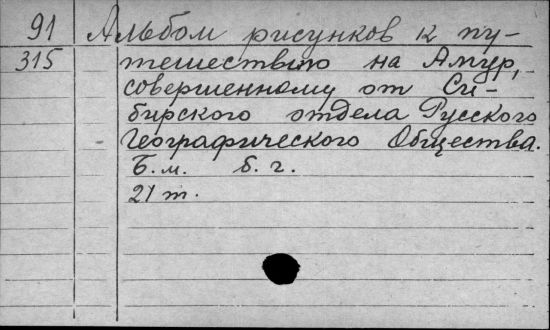 91 Альбом рисунков к пу-
315 тешествию на Амур,
совершенному от Си-
бирского отдела Русского
Географического Общества.
Б.м. б.г.
21 т.